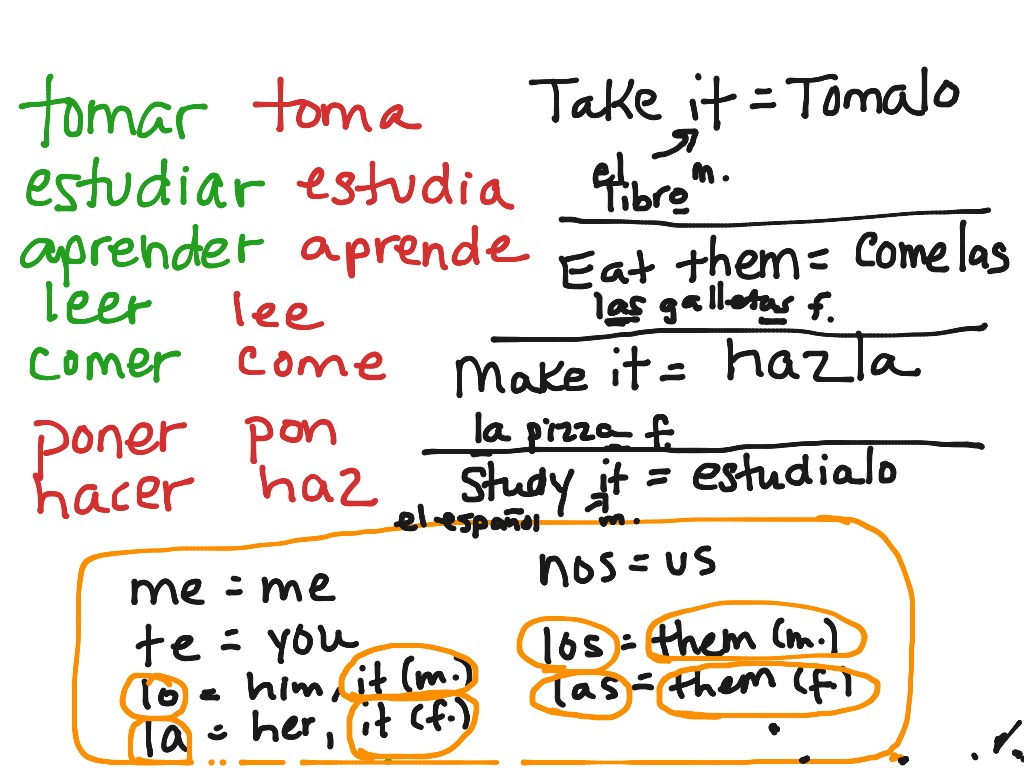 tomar toma
estudiar estudia
aprender aprende
leer lee
comer come
poner pon
hacer haz
Take it = Tomalo
el libro m.
Eat them = Comelas
las galletas f.
Make it = hazla
la pizza f.
Study it = estudialo
el español m.
me = me
te = you
lo = him, it (m.)
la = her, it (f.)
nos = us
los = them (m.)
las = them (f.)